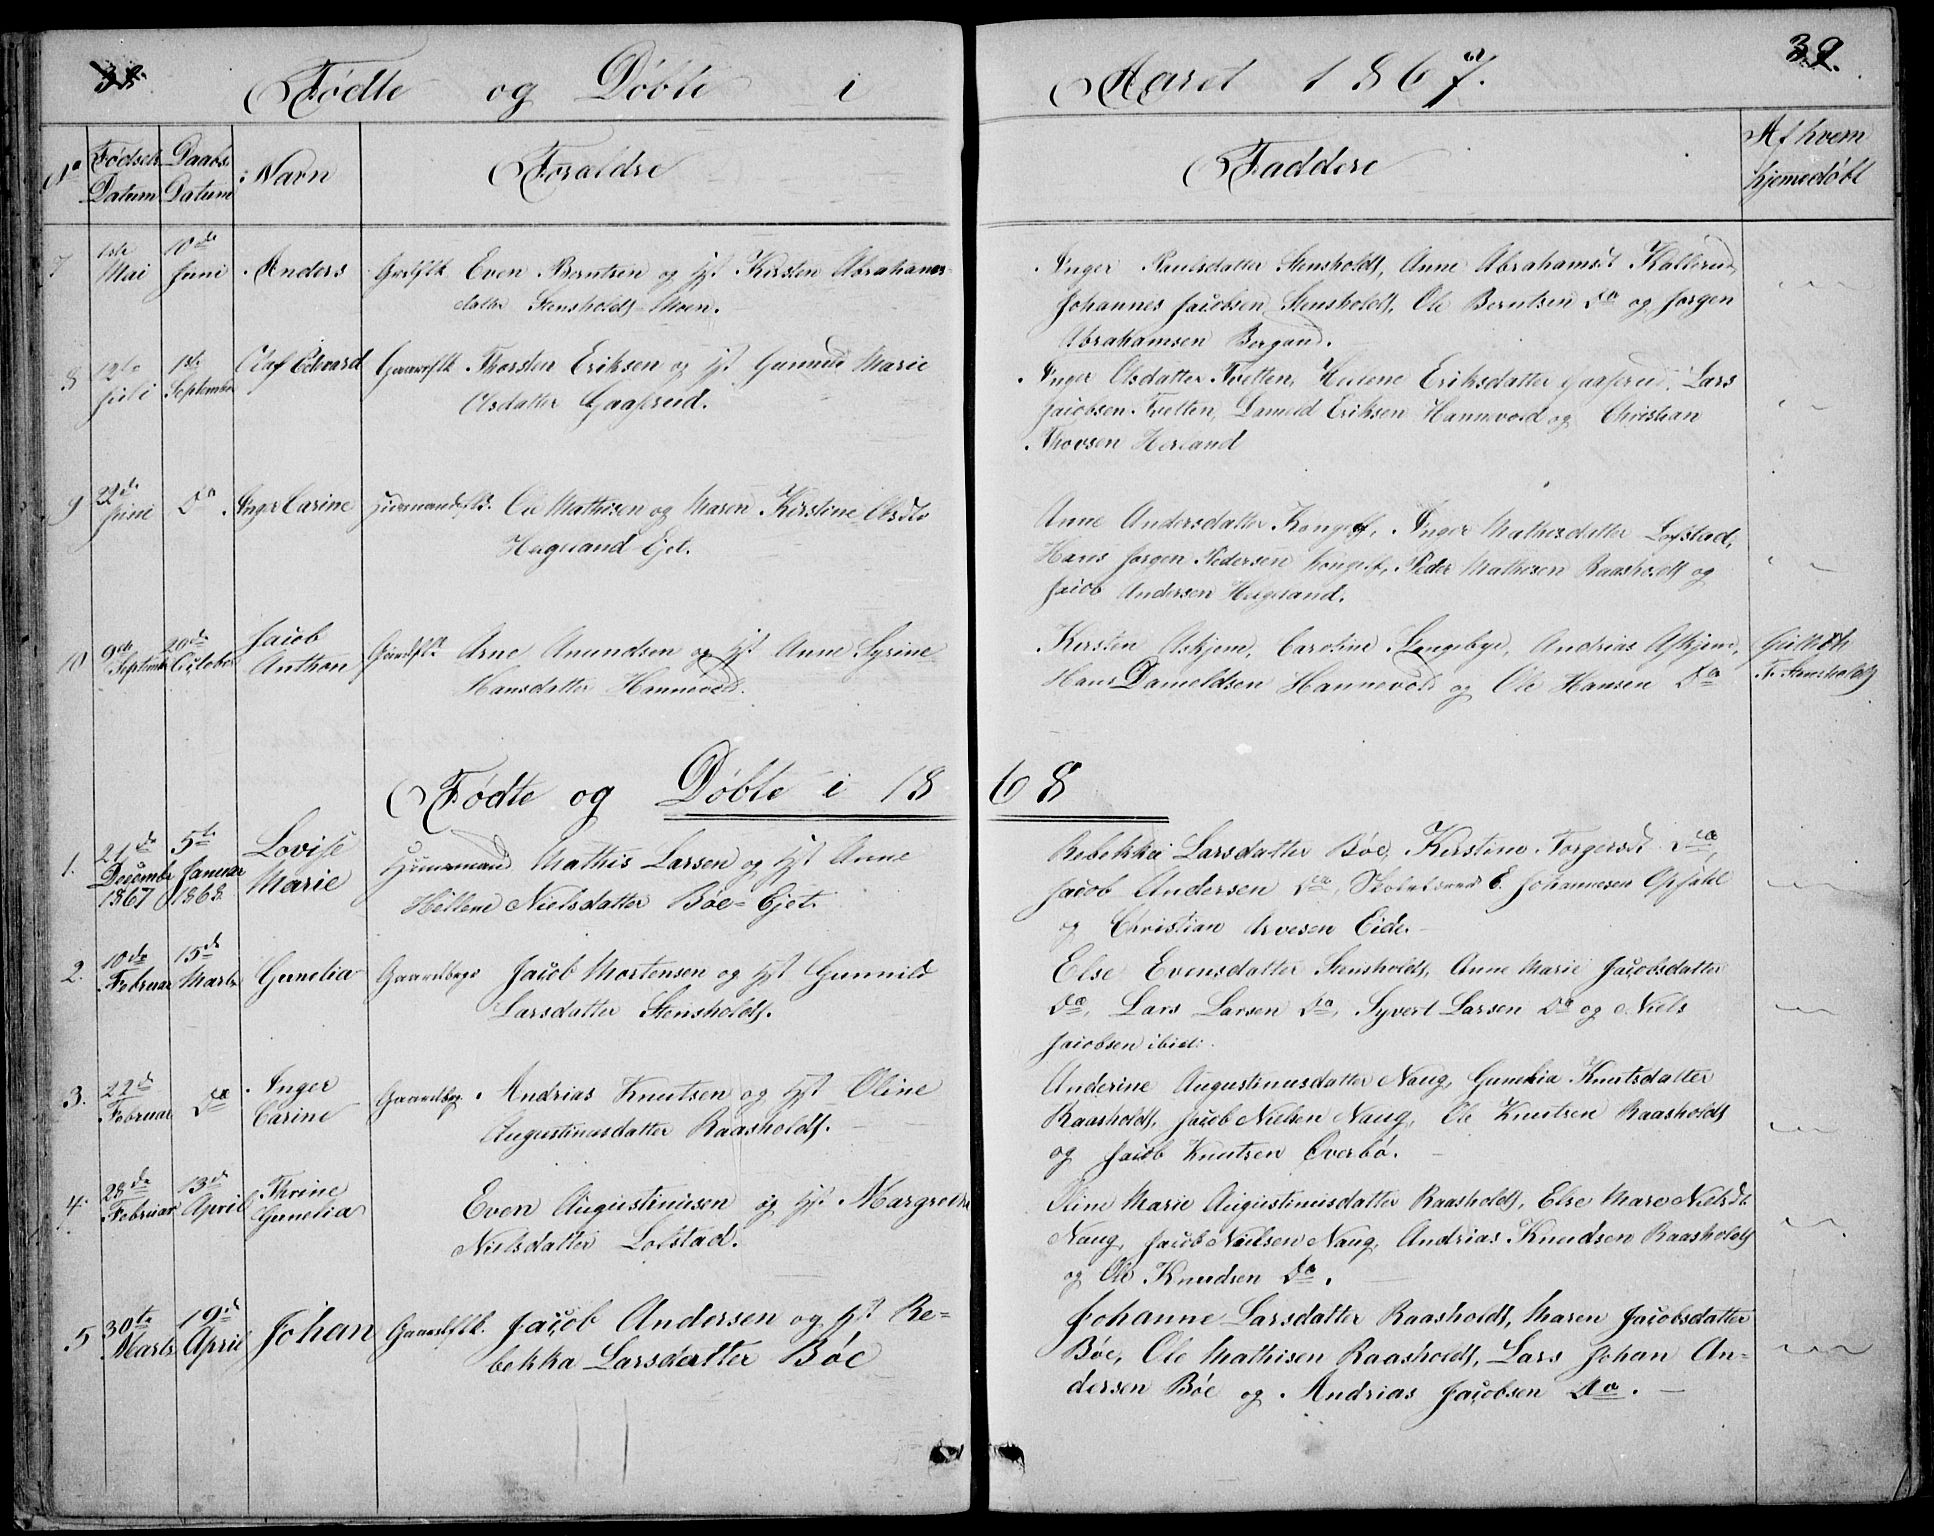 38.
39.
Fødte og Døbte i Aaret 1867.
No Fødsels Datum Daabs Datum Navn Forældre Faddere Af hvem hjemmedøbt
7 1ste Mai 10de Juni Anders Grdflk Even Berntsen og hst Kirsten Abrahams-
datter Stensholdt Moen.
Inger Paulsdatter Stensholdt, Anne Abrahamsd Kallerud,
Johannes Jacobsen Stensholdt, Ole Berntsen Do og Jørgen
Abrahamsen Bergan.
8 12te Juli 1ste September Olaf Edvard Gaardflk Thorsten Eriksen og hst Gunnild Marie
Olsdatter Gaaserud.
Inger Olsdatter Tvetten, Helene Eriksdatter Gaaserud, Lars
Jacobsen Tvetten, Daniel Eriksen Hannevold og Christian
Thovsen Herland
9 22de Juni Do Inger Carine Huusmandsflk. Ole Mathisen og Maren Kirstine Olsdtr
Hegeland Ejet.
Anne Andersdatter Kongelf, Inger Mathisdatter Lofstad,
Hans Jørgen Pedersen Kongelf, Peder Mathisen Raasholdt og
Jacob Andersen Hegeland.
10 9de September 20de October Jacob Anthon Gaardflk Arne Amundsen og hst Anne Syrine
Hansdatter Hannevold.
Kirsten Askjem, Caroline Langebye, Andrias Askjem,
Hans Danieldsen Hannevold og Ole Hansen Do
F. Stensholdt
Fødte og Døbte i 1868
1. 21de Decembr 1867 5te Januar 1868 Lovise Marie Huusmand Mathis Larsen og hst Anne
Hellene Nielsdatter Bøe-Ejet.
Rebekka Larsdatter Bøe, Kirstine Torgersd Do,
Jacob Andersen Do, E. Johannesen Opsahl
og Christian Arvesen Eide.
2. 10de Februar 15de Marts Gunelia Gaardbrgs Jacob Mortensen og hst Gunnild
Larsdatter Stensholdt.
Else Evensdatter Stensholdt, Anne Marie Jacobsdatter
Do, Lars Larsen Do, Syvert Larsen Do og Niels
Jacobsen ibid.
3. 22de Februar Do Inger Carine Gaardbrg. Andrias Knutsen og hst Oline
Augustinusdatter Raasholdt.
Anderine Augustinusdatter Naug, Gunelia Knutsdatter
Raasholdt, Jacob Nielsen Naug, Ole Knutsen Raasholdt
og Jacob Knutsen Overbø.
4. 28de Februar 13de April Thrine Gunelia Even Augustinusen og hst Margrethe
Nielsdatter Lofstad.
Oline Marie Augustinusdatter Raasholdt, Else Mare Nielsdt
Naug, Jacob Nielsen Naug, Andrias Knudsen Raasholdt
og Ole Knudsen Do.
5 30te Marts 19de April Johan Gaardflk. Jacob Andersen og hst Re-
bekka Larsdatter Bøe
Johanne Larsdatter Raasholdt, Maren Jacobsdatter
Bøe, Ole Mathisen Raasholdt, Lars Johan An-
dersen Bøe og Andrias Jacobsen Do.